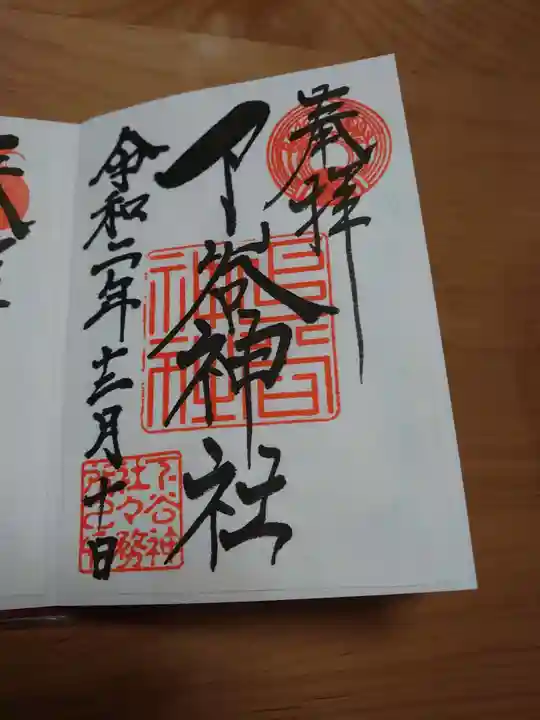 奉拝
下谷神社
令和二年十二月十日
下谷神
社々務
所之印